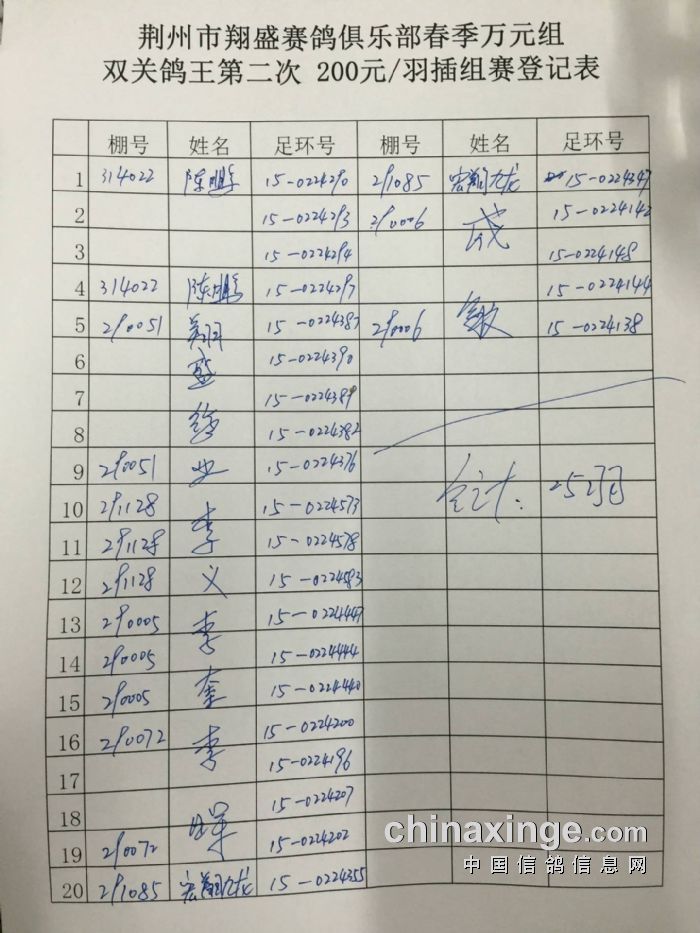 荆州市翔盛赛鸽俱乐部春季万元组
双关鸽王第二次 200元/羽插组赛登记表
棚号 姓名 足环号 棚号 姓名 足环号
1 314022 陈鹏 15-0224290 291085 宏翔九龙 15-0224347
2 15-0224293 290006 成 15-0224142
3 15-0224294 15-0224148
4 314022 陈鹏 15-0224297 15-0224144
5 290051 翔 15-0224387 290006 敏 15-0224138
6 盛 15-0224390
7 15-0224389
8 15-0224382
9 290051 15-0224376 合计: 25羽
10 291128 李 15-0224573
11 291128 15-0224578
12 291128 义 15-0224583
13 290005 李 15-0224447
14 290005 15-0224444
15 290005 奎 15-0224440
16 290072 李 15-0224200
17 15-0224196
18 15-0224207
19 290072 晖 15-0224202
20 291085 宏翔九龙 15-0224355
chinaxinge.com
中国信鸽信息网